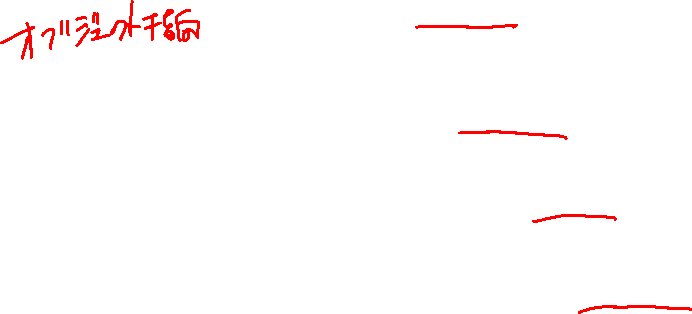 オブジェクト指向